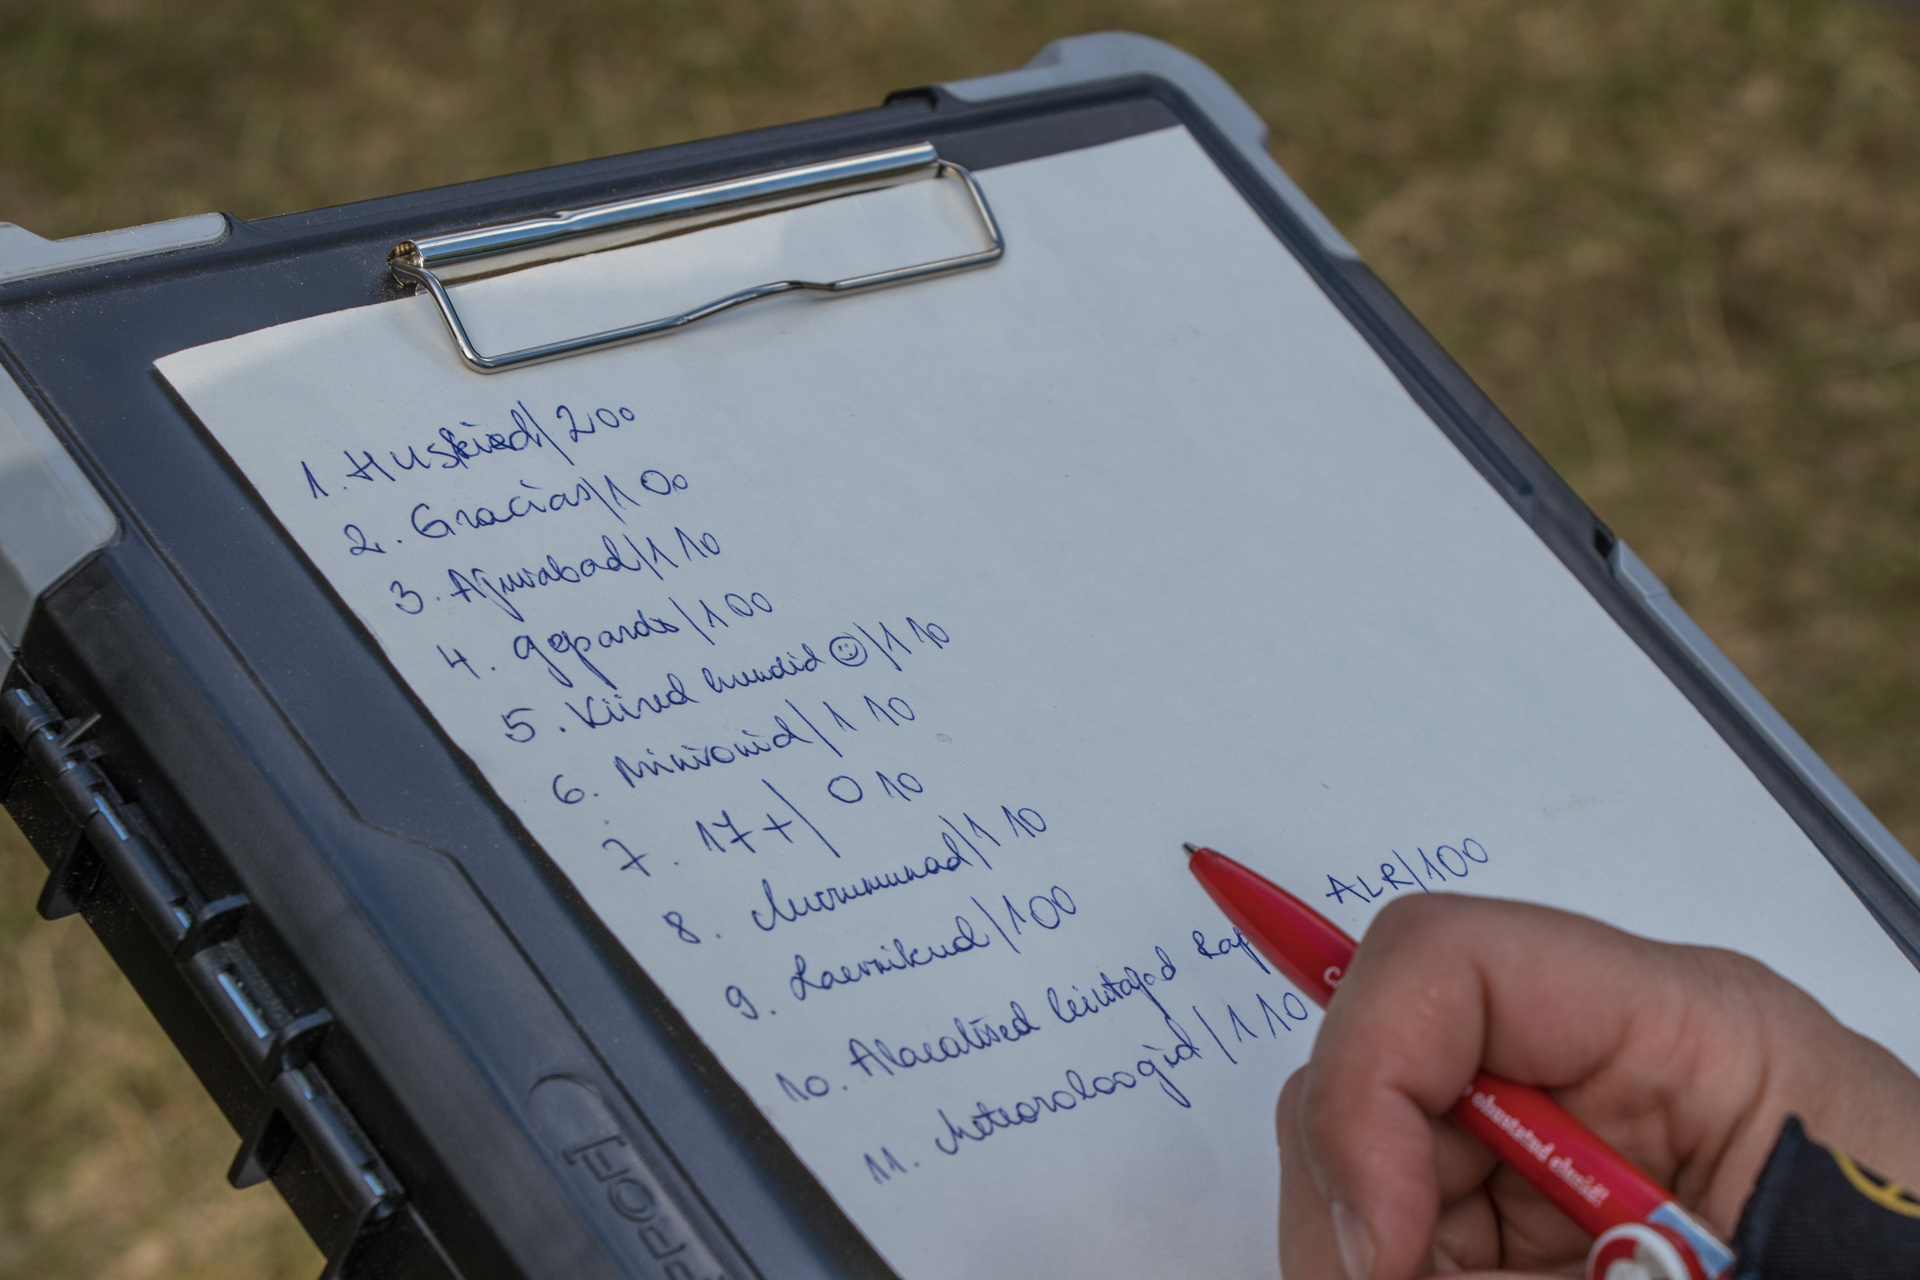 1. Huskied/200
2. Gracias/100
3. Ajurabad/110
4. Gepards/100
5. Kiired kundid ☺/110
6. Minionid/110
7. 17+/010
8. Murumunad/110
9. Laevnikud/100
10. Alaealised ALR/100
11. Meteoroloogid/110
PROFI